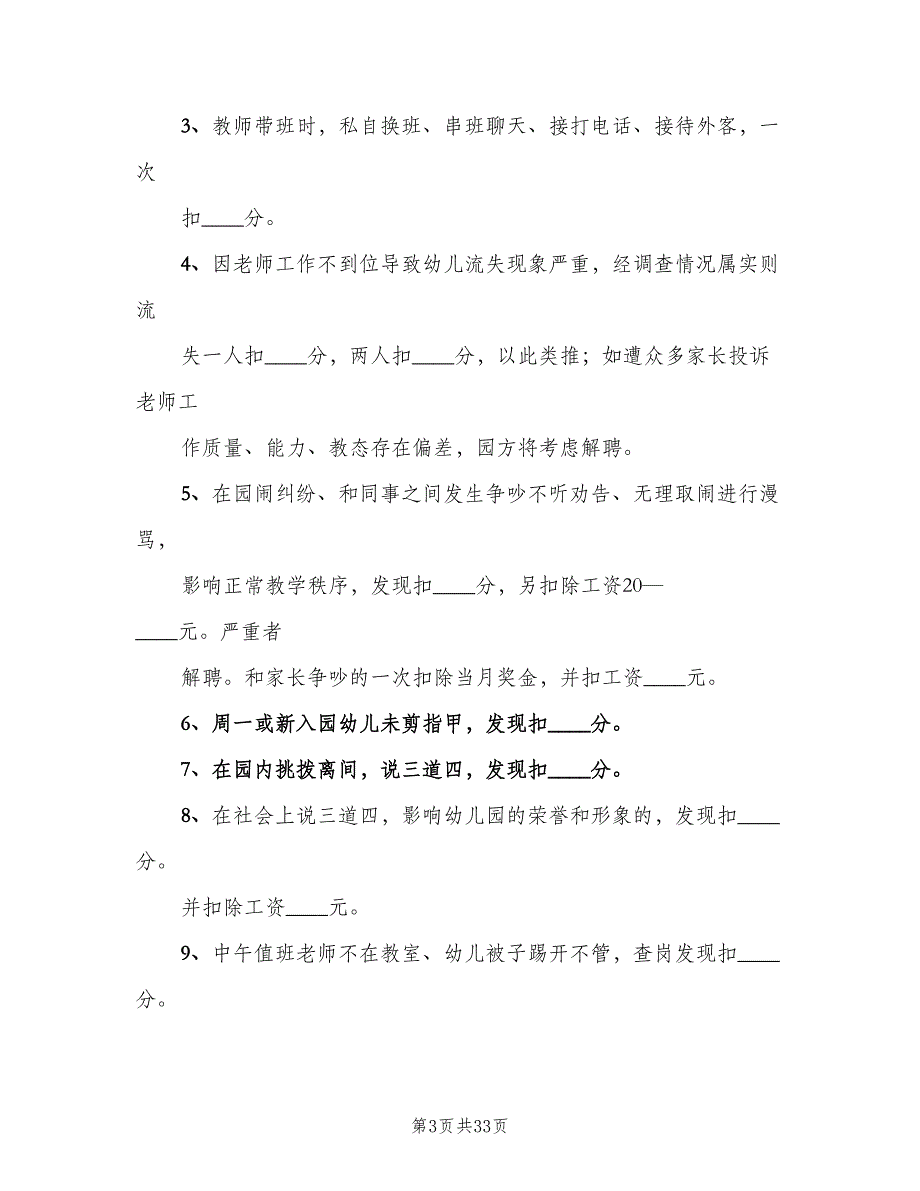 3、教师带班时，私自换班、串班聊天、接打电话、接待外客，一
次
扣____分。
4、因老师工作不到位导致幼儿流失现象严重，经调查情况属实则
流
失一人扣____分，两人扣____分，以此类推；如遭众多家长投诉
老师工
作质量、能力、教态存在偏差，园方将考虑解聘。
5、在园闹纠纷、和同事之间发生争吵不听劝告、无理取闹进行漫
骂，
影响正常教学秩序，发现扣____分，另扣除工资20—
____元。严重者
解聘。和家长争吵的一次扣除当月奖金，并扣工资____元。
6、周一或新入园幼儿未剪指甲，发现扣____分。
7、在园内挑拨离间，说三道四，发现扣____分。
8、在社会上说三道四，影响幼儿园的荣誉和形象的，发现扣____
分。
并扣除工资____元。
9、中午值班老师不在教室、幼儿被子踢开不管，查岗发现扣____
分。
第3页共33页